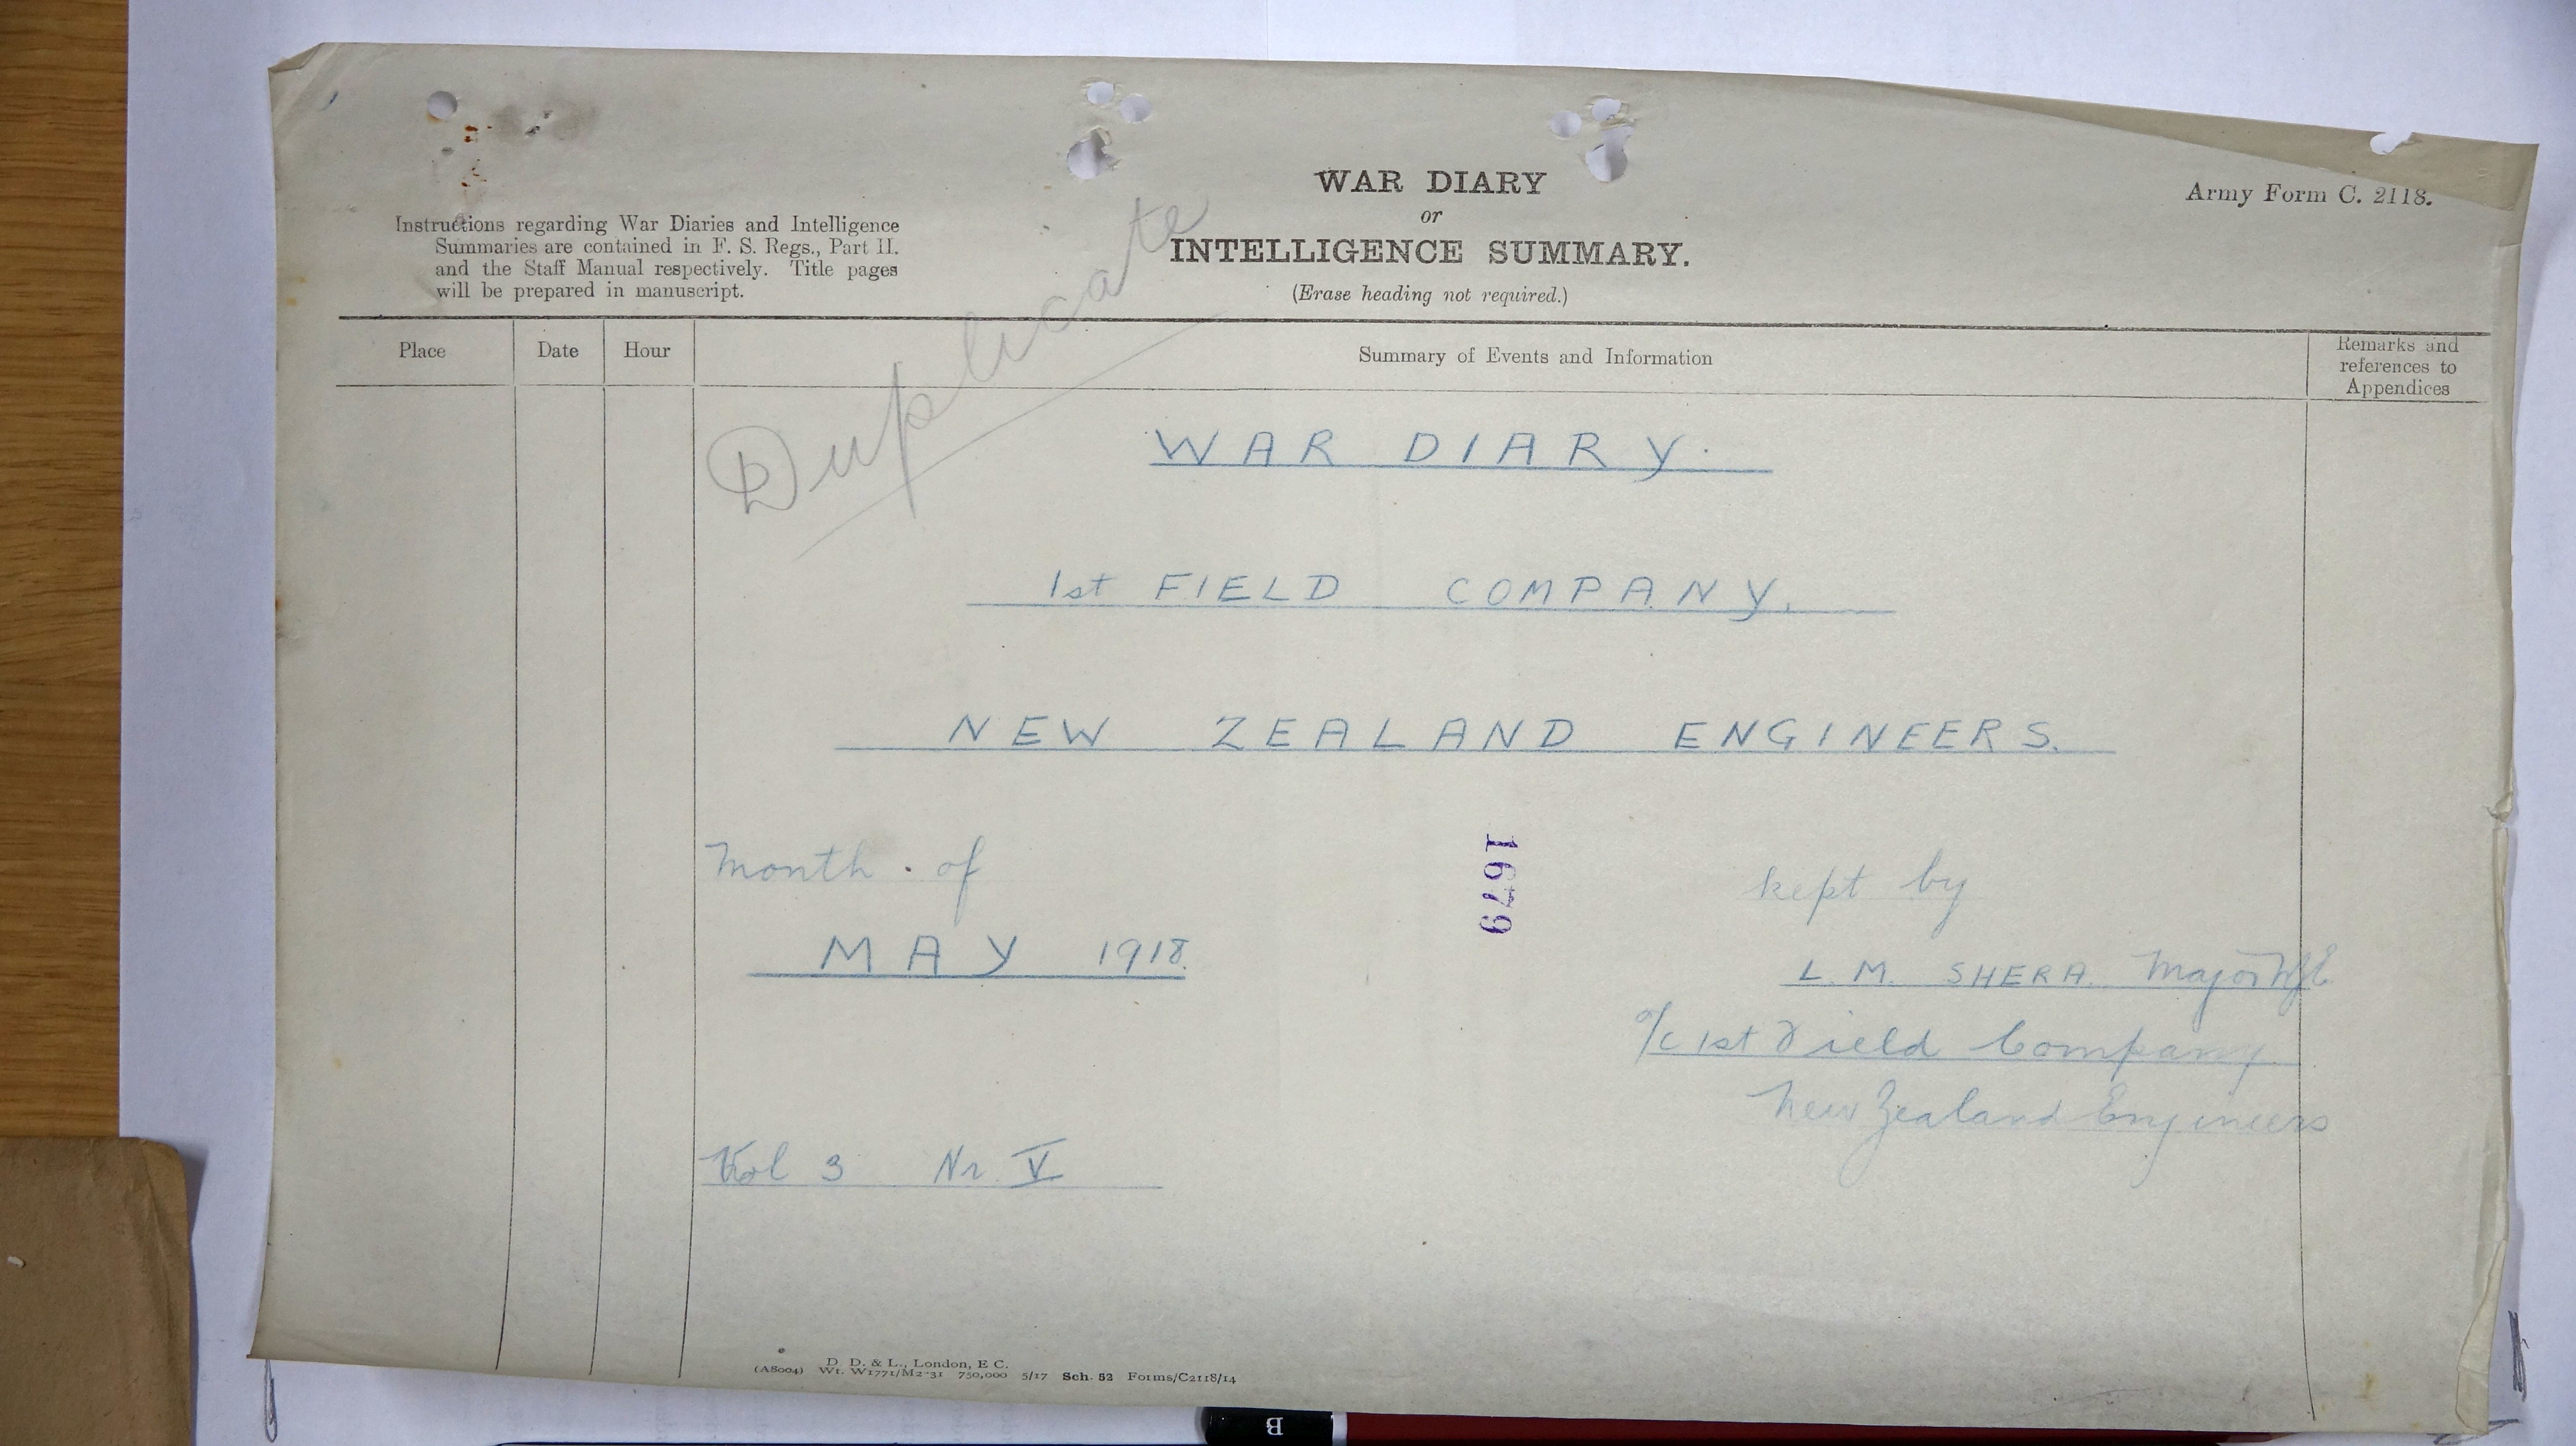 WAR DIARY
or
INTELLIGENCE SUMMARY.
(Erase heading not required.)
Army Form C. 2118.
Instructions regarding War Diaries and Intelligence
Summaries are contained in F. S. Regs., Part II.
and the Staff Manual respectively. Title pages
will be prepared in manuscript.
Duplicate
Place Date Hour Summary of Events and Information Remarks and
references to
Appendices
WAR DIARY.
1st FIELD COMPANY.
NEW ZEALAND ENGINEERS.
Month of
MAY 1918.
1679
kept by
L. M. SHERA. Major NZE
O/C 1st Field Company
New Zealand Engineers
Vol 3 Nr. V
D. D. & L., London, E C.
(A8004) Wt. W1771/M2-31 750,000 5/17 Sch. 52 Forms/C2118/14
B